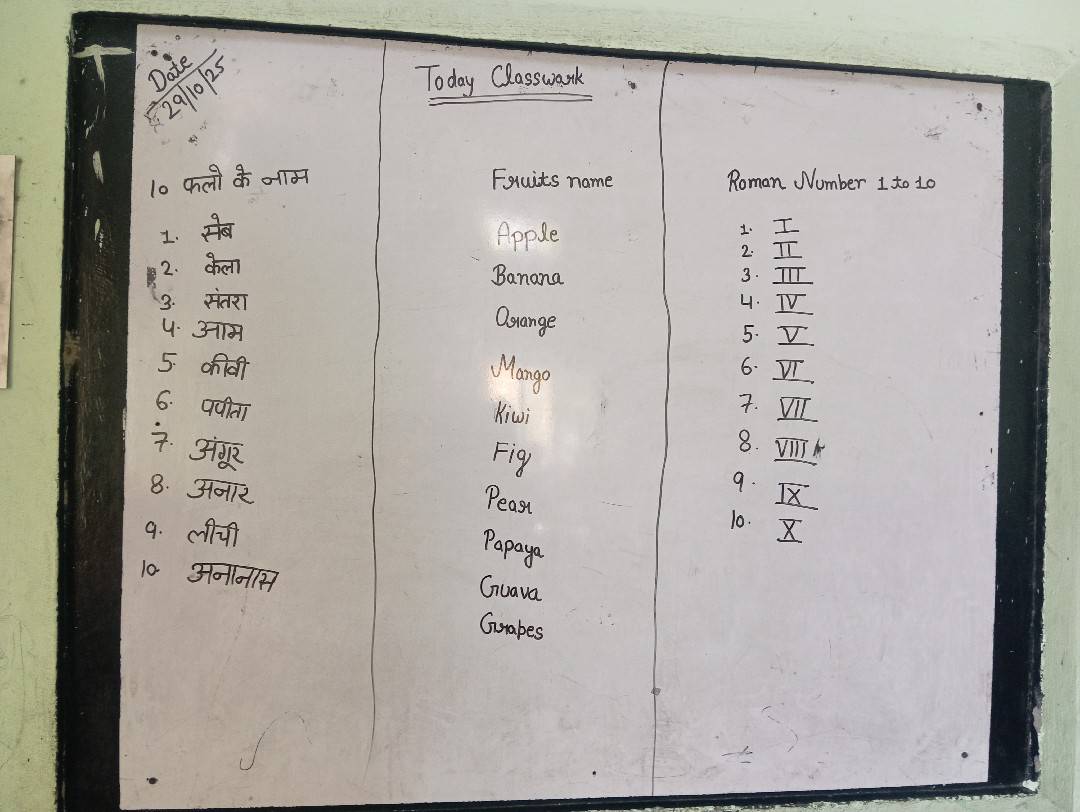 Date
29/10/25
Today Classwork
10 फलो के नाम
1. सेब
2. केला
3. संतरा
4. आम
5. कीवी
6. पपीता
7. अंगूर
8. अनार
9. लीची
10 अनानास
Fruits name
Apple
Banana
Orange
Mango
Kiwi
Fig
Pear
Papaya
Guava
Grapes
Roman Number 1 to 10
1. I
2. II
3. III
4. IV
5. V
6. VI
7. VII
8. VIII
9. IX
10. X